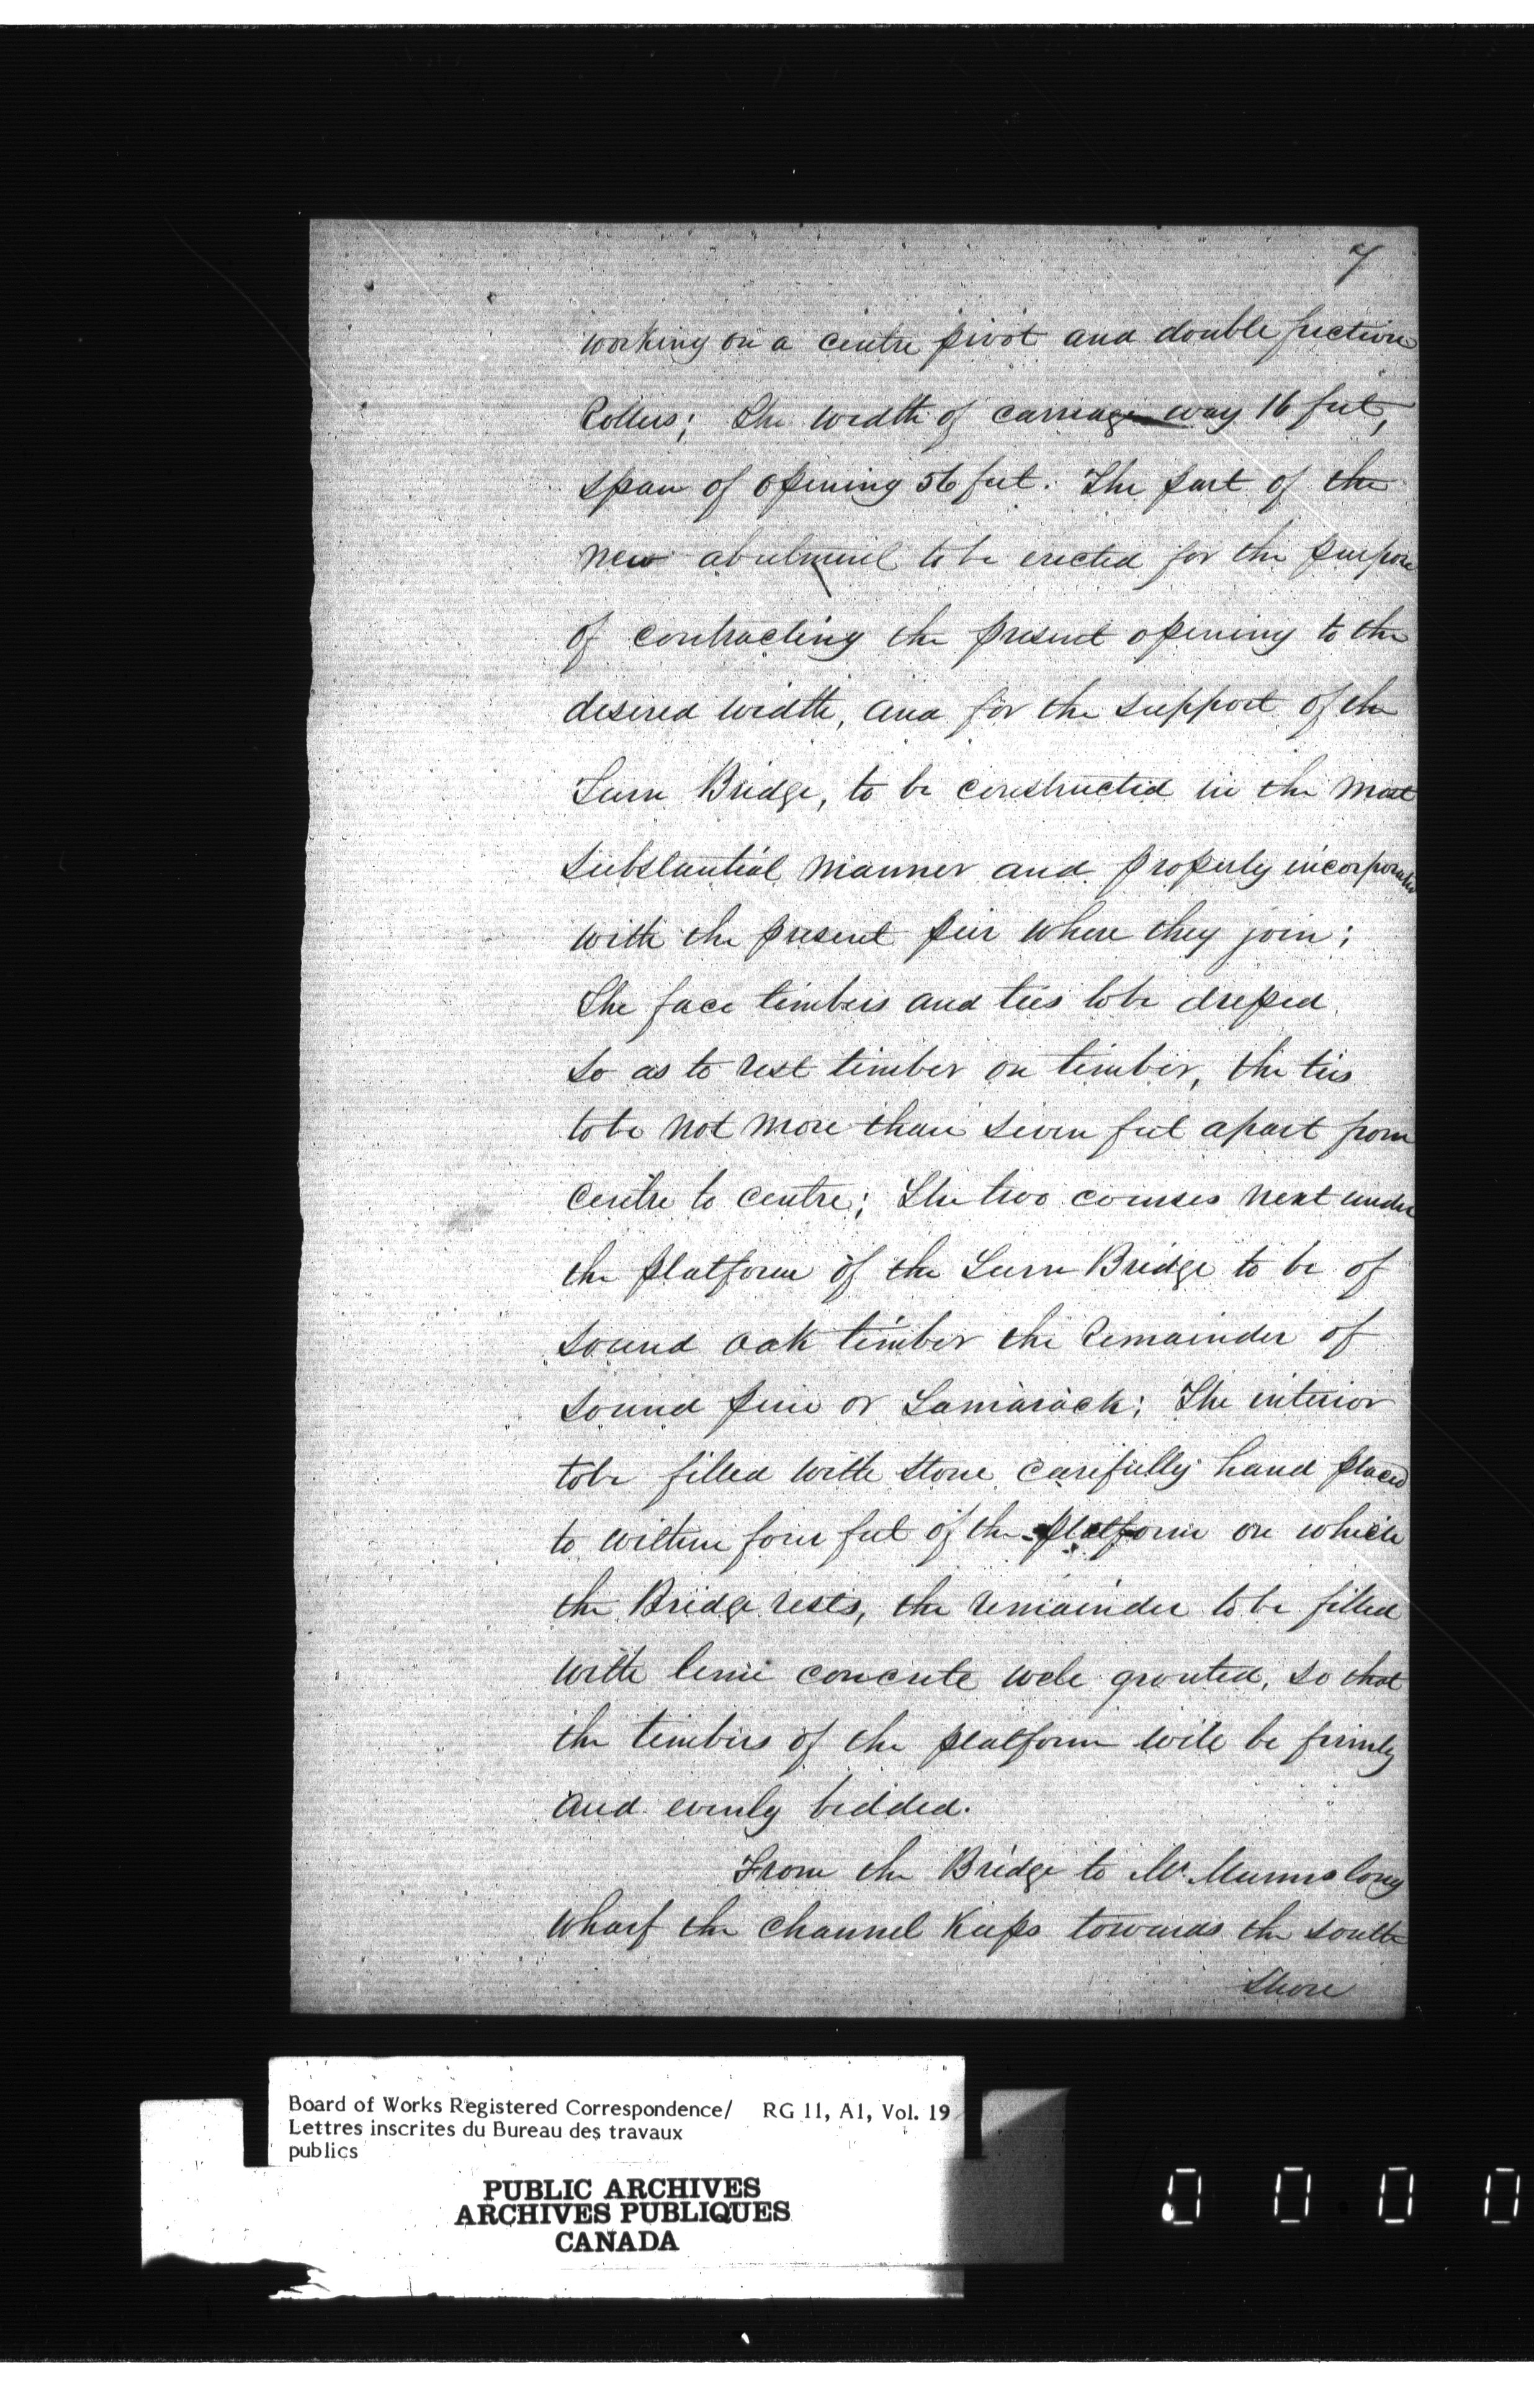 7
working on a centre pivot and double friction
Rollers; The width of carriage way 16 feet,
span of opening 56 feet. The part of the
new abutment to be erected for the purpose
of contracting the present opening to the
desired width, and for the support of the
Turn Bridge, to be constructed in the most
substantial manner and properly incorporated
with the present pier where they join;
The face timbers and ties to be
so as to rest timber on timber, the ties
to be not more than seven feet apart from
centre to centre; The two courses next under
the platform of the Turn Bridge to be of
sound oak timber the Remainder of
sound pine or Tamarack; The interior
to be filled with stone carefully hand placed
to within four feet of the platform on which
the Bridge rests, the remainder to be filled
with lime concrete well grouted, so that
the timbers of the platform will be firmly
and evenly bedded.
From the Bridge to Mr. Munns long
wharf the channel keeps towards the south
shore
Board of Works Registered Correspondence/ RG 11, A1, Vol. 19
Lettres inscrites du Bureau des travaux
publics
PUBLIC ARCHIVES
ARCHIVES PUBLIQUES
CANADA
0 0 0 0